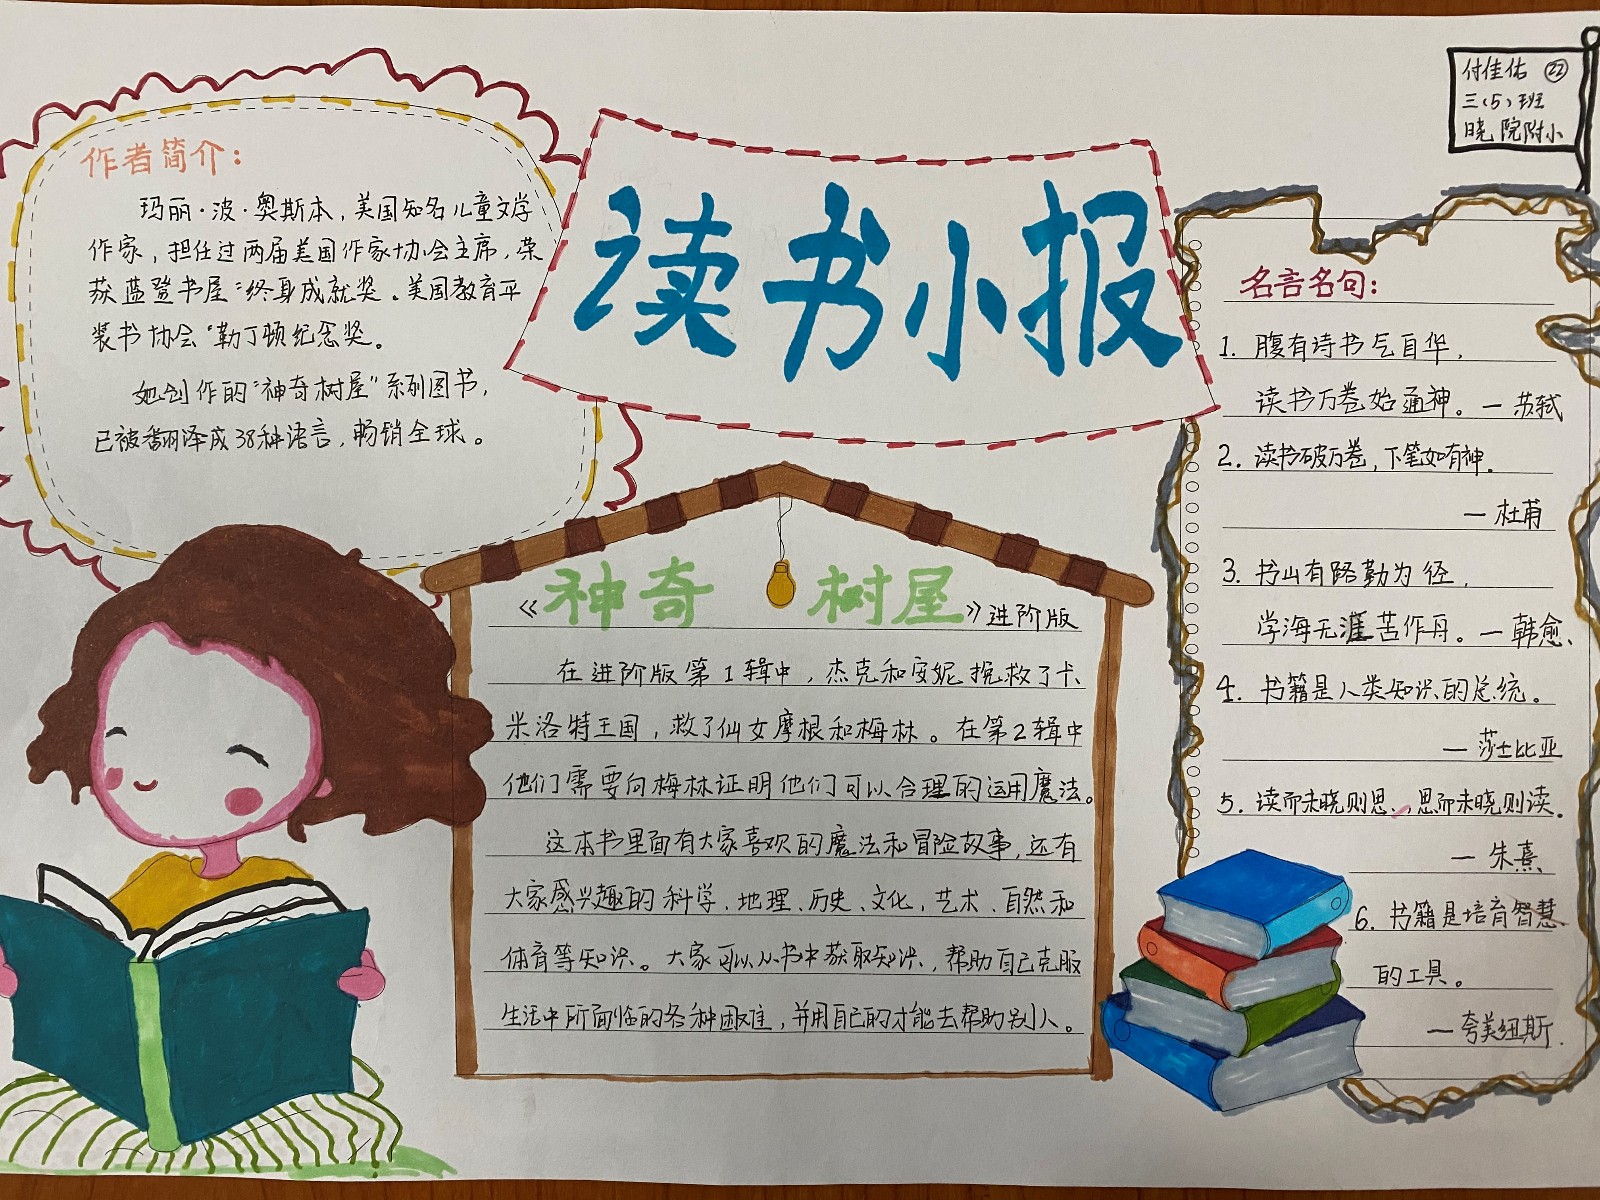 付佳佑 22
三(5)班
晓院附小
读书小报
作者简介：
玛丽·波·奥斯本，美国知名儿童文学
作家，担任过两届美国作家协会主席，荣
获蓝登书屋“终身成就奖。美国教育平
装书协会“勒丁顿纪念奖。
她创作的“神奇树屋”系列图书，
已被翻译成38种语言，畅销全球。
《神奇树屋》进阶版
在进阶版第1辑中，杰克和安妮挽救了卡
米洛特王国，救了仙女摩根和梅林。在第2辑中
他们需要向梅林证明他们可以合理的运用魔法。
这本书里面有大家喜欢的魔法和冒险故事，还有
大家感兴趣的科学、地理、历史、文化，艺术、自然和
体育等知识。大家可以从书中获取知识，帮助自己克服
生活中所面临的各种困难，并用自己的才能去帮助别人。
名言名句：
1. 腹有诗书气自华，
读书万卷始通神。—苏轼
2. 读书破万卷，下笔如有神。
—杜甫
3. 书山有路勤为径，
学海无涯苦作舟。—韩愈、
4. 书籍是人类知识的总统。
—莎士比亚
5. 读而未晓则思，思而未晓则读。
—朱熹、
6. 书籍是培育智慧
的工具。
—夸美纽斯.